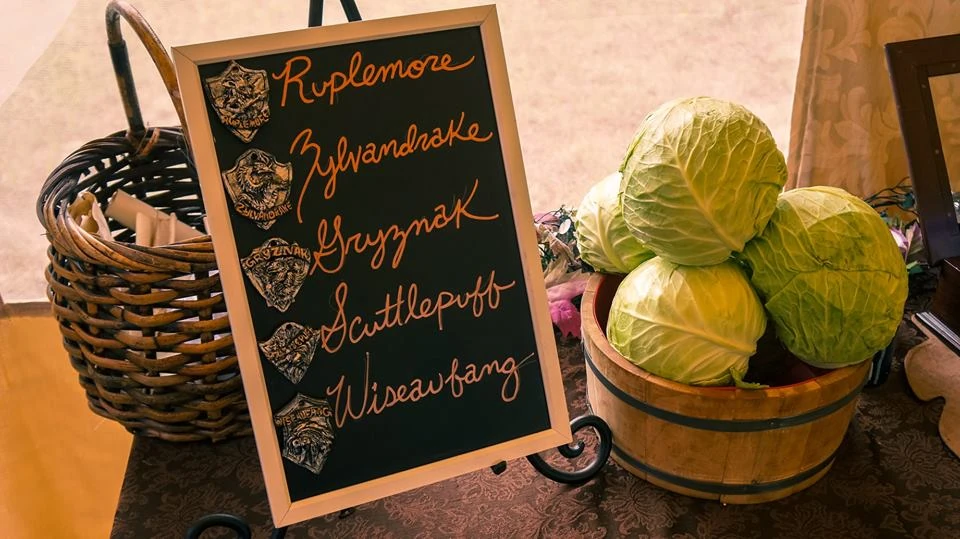 Ruplemore
RUPLEMORE
Zylvandrake
ZYLVANDRAKE
Gryznak
GRYZNAK
Scuttlepuff
Wiseaufang